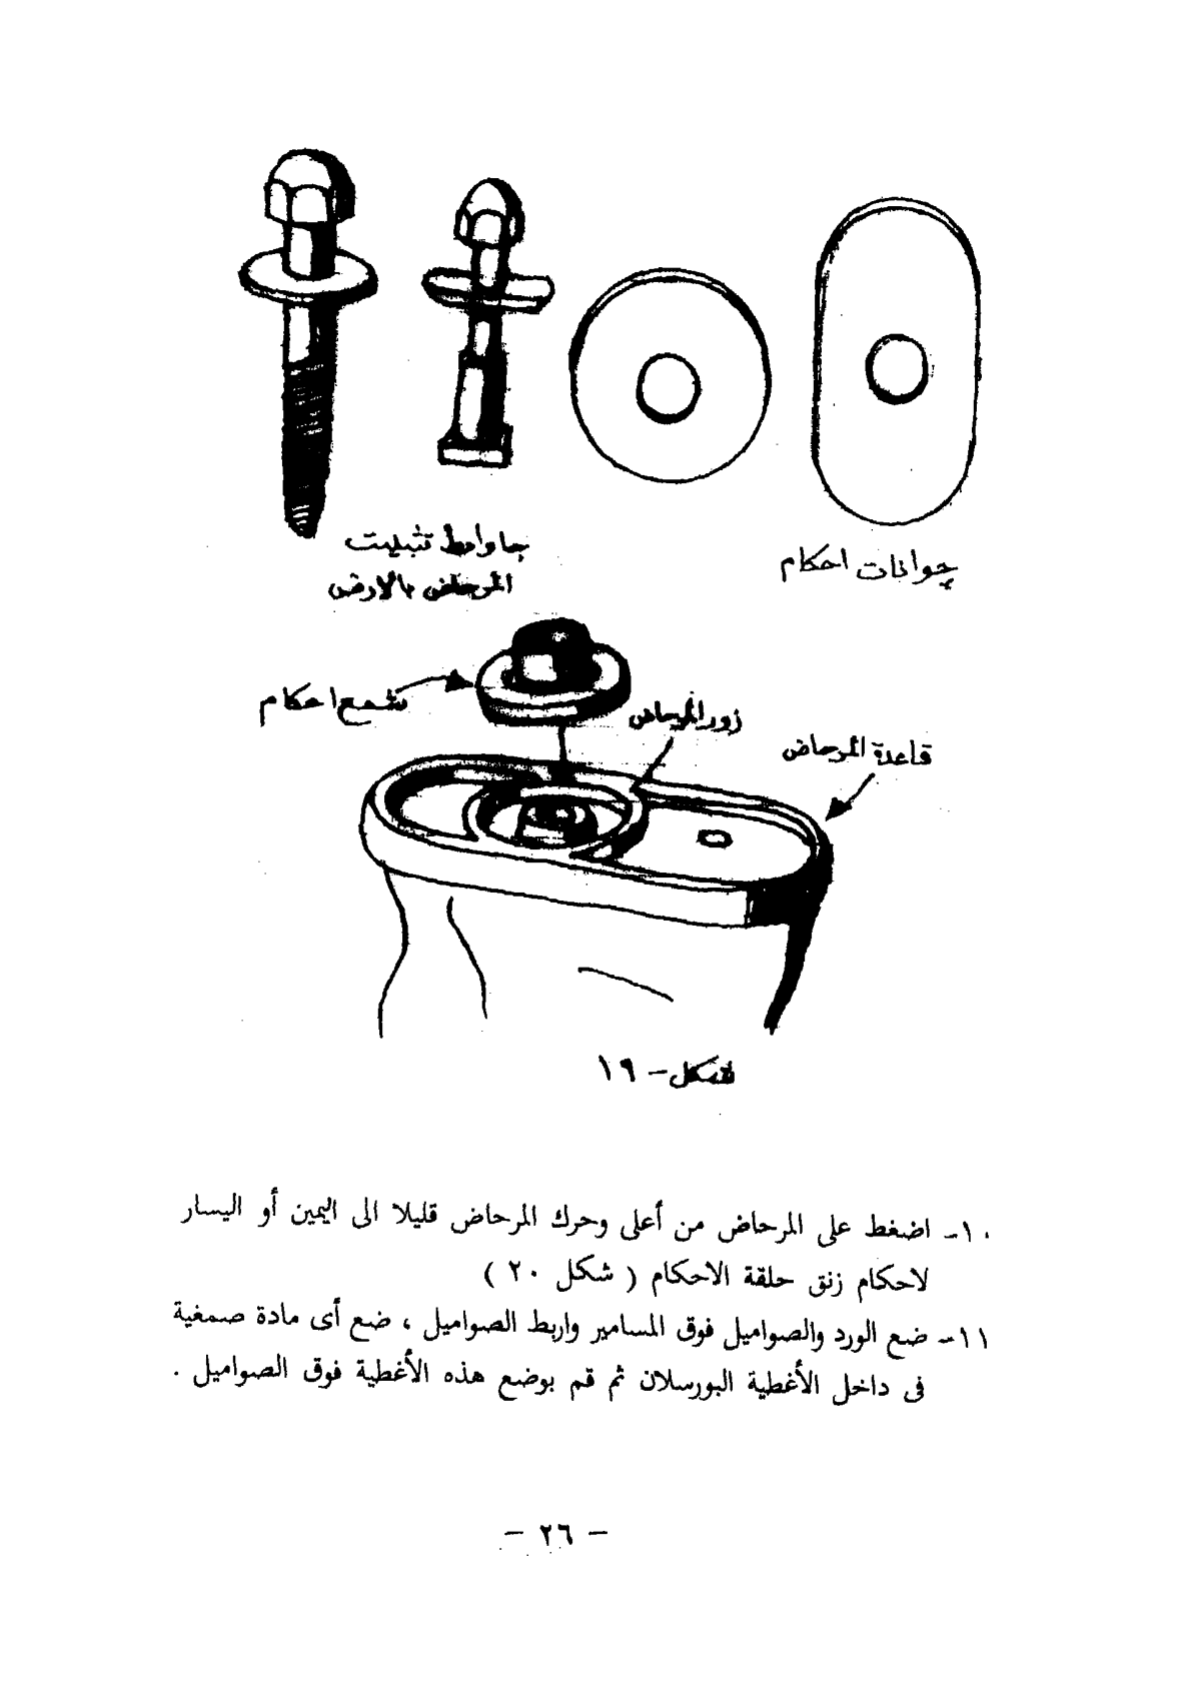 جوانات احكام
جاوايط تثبيت
المرحاض بالارض
شمع احكام
زور المرحاض
قاعدة المرحاض
شكل - ١٩
١٠- اضغط على المرحاض من أعلى وحرك المرحاض قليلا الى اليمين أو اليسار
لاحكام زنق حلقة الاحكام ( شكل ٢٠ )
١١- ضع الورد والصواميل فوق المسامير واربط الصواميل ، ضع أى مادة صمغية
فى داخل الأغطية البورسلان ثم قم بوضع هذه الأغطية فوق الصواميل .
- ٢٦ -